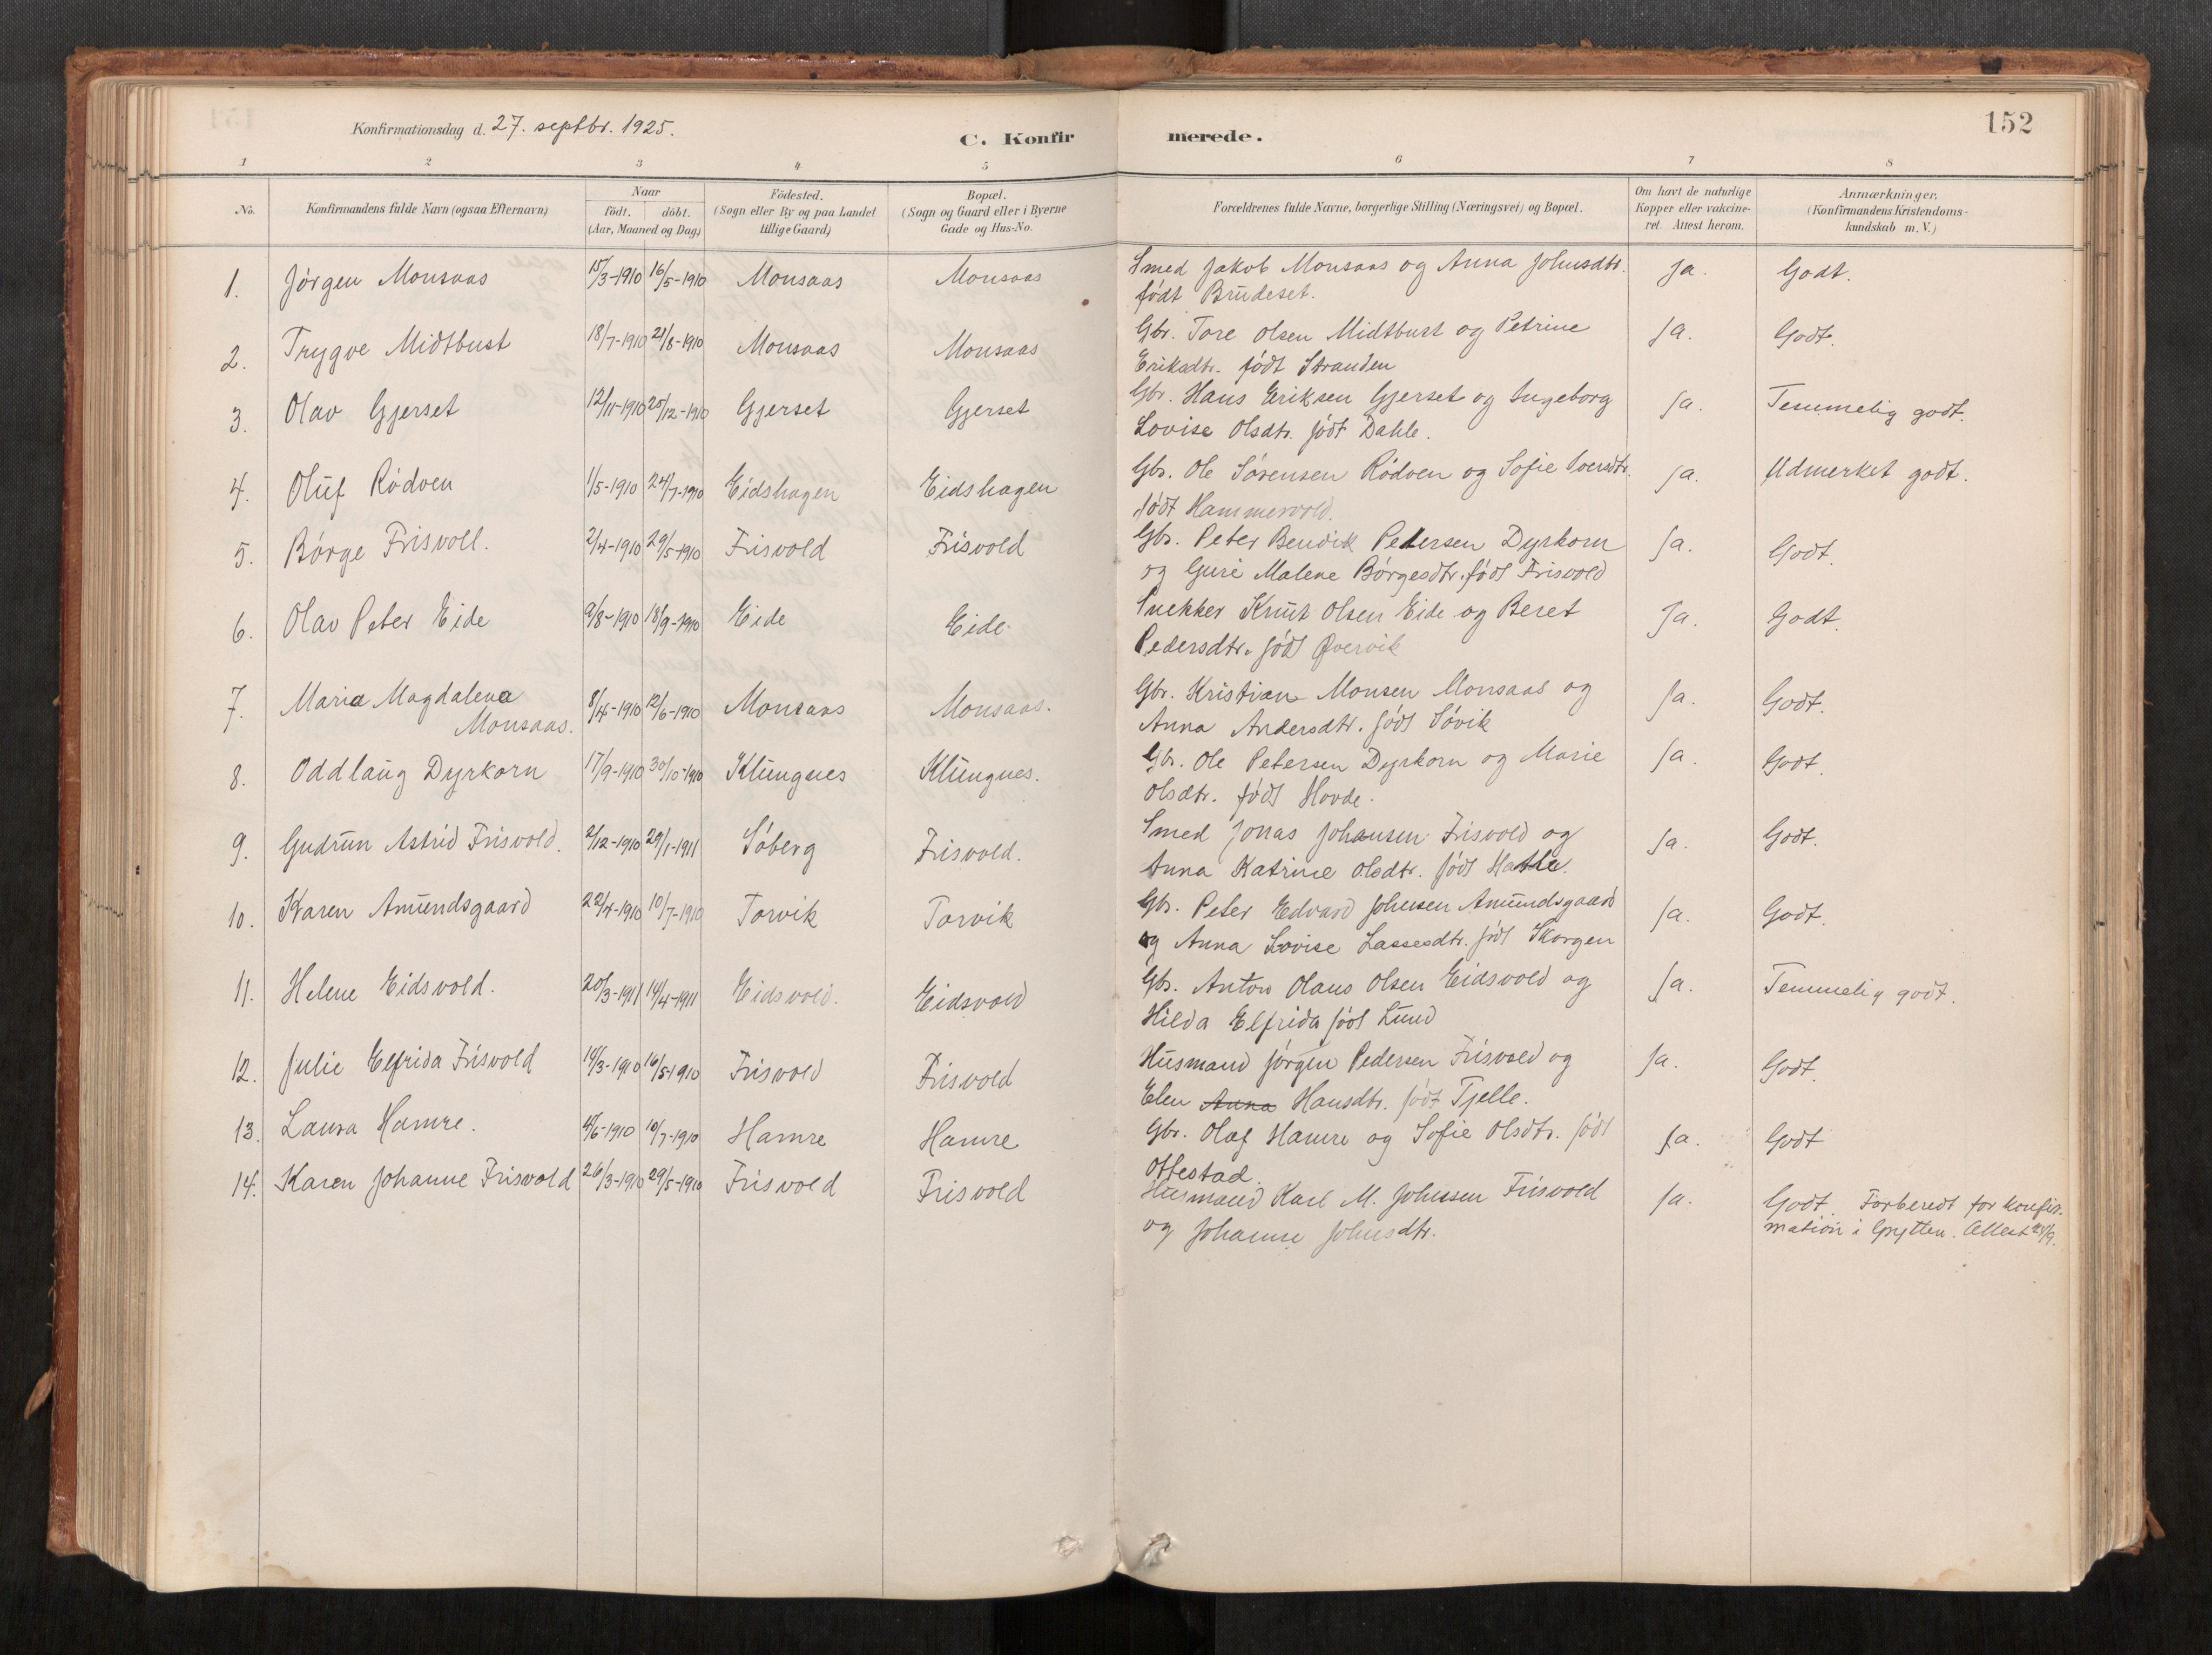 Konfirmationsdag d. 27. septbr. 1925.
C. Konfirmerede.
152
1 2 3 4 5 6 7 8
No.
Konfirmandens fulde Navn (ogsaa Efternavn)
Naar
födt. döbt.
(Aar, Maaned og Dag)
Födested.
(Sogn eller By og paa Landet
tillige Gaard)
Bopæl.
(Sogn og Gaard eller i Byerne
Gade og Hus-No.
Forældrenes fulde Navne, borgerlige Stilling (Næringsvei) og Bopæl.
Om havt de naturlige
Kopper eller vakcine-
ret. Attest herom.
Anmærkninger.
(Konfirmandens Kristendoms-
kundskab m. V.)
1. Jörgen Monsaas 15/3-1910 16/5-1910 Monsaas Monsaas Smed Jakob Monsaas og Anna Johnsdtr. Ja. Godt.
födt Brudeset.
2. Trygve Midtbust 18/7-1910 21/8-1910 Monsaas Monsaas Gbr. Tore Olsen Midtbust og Petrine Ja. Godt.
Eriksdtr. födt Stranden
3. Olav Gjerset 12/11-1910 25/12-1910 Gjerset Gjerset Gbr. Hans Eriksen Gjerset og Ingeborg Ja. Temmelig godt.
Lovise Olsdtr. födt Dahle.
4. Oluf Rödven 1/5-1910 24/7-1910 Eidshagen Eidshagen Gbr. Ole Sörensen Rödven og Sofie Iversdtr. Ja. Udmerket godt.
födt Hammervold.
5. Börge Frisvoll. 2/4-1910 29/5-1910 Frisvold Frisvold Gbr. Peter Bendik Petersen Dyrkorn Ja. Godt.
og Guri Malene Börgesdtr. födt Frisvold
6. Olav Peter Eide 9/8-1910 18/9-1910 Eide Eide Snekker Knut Olsen Eide og Beret Ja. Godt.
Pedersdtr. födt Øvervik
7. Maria Magdalena 8/4-1910 12/6-1910 Monsaas Monsaas. Gbr. Kristian Monsen Monsaas og Ja. Godt.
Monsaas. Anna Andersdtr. födt Sövik
8. Oddlaug Dyrkorn 17/9-1910 30/10-1910 Klungnes Klungnes. Gbr. Ole Petersen Dyrkorn og Marie Ja. Godt.
Olsdtr. födt Hovde.
9. Gudrun Astrid Frisvold. 2/12-1910 29/1-1911 Söberg Frisvold. Smed Jonas Johansen Frisvold og Ja. Godt.
Anna Katrine Olsdtr. födt
10. Karen Amundsgaard 22/4-1910 10/7-1910 Torvik Torvik Gbr. Peter Edvard Johnsen Amundsgaard Ja. Godt.
og Anna Lovise Lassesdtr. födt Skorgen
11. Helene Eidsvold. 20/3-1911 14/4-1911 Eidsvold. Eidsvold Gbr. Anton Olaus Olsen Eidsvold og Ja. Temmelig godt.
Hilda Elfrida födt Lund
12. Julie Elfrida Frisvold 14/3-1910 16/5-1910 Frisvold Frisvold Husmand Jörgen Pedersen Frisvold og Ja. Godt.
Elen Anna Hansdtr. födt Tjelle.
13. Laura Hamre. 4/6-1910 10/7-1910 Hamre Hamre Gbr. Olaf Hamre og Sofie Olsdtr. födt Ja. Godt
Ottestad.
14. Karen Johanne Frisvold 26/3-1910 29/5-1910 Frisvold Frisvold Husmand Karl M. Johnsen Frisvold Ja. Godt. Forberedt for konfir-
og Johanne Johnsdtr. mation i Grytten. Attest 24/9.